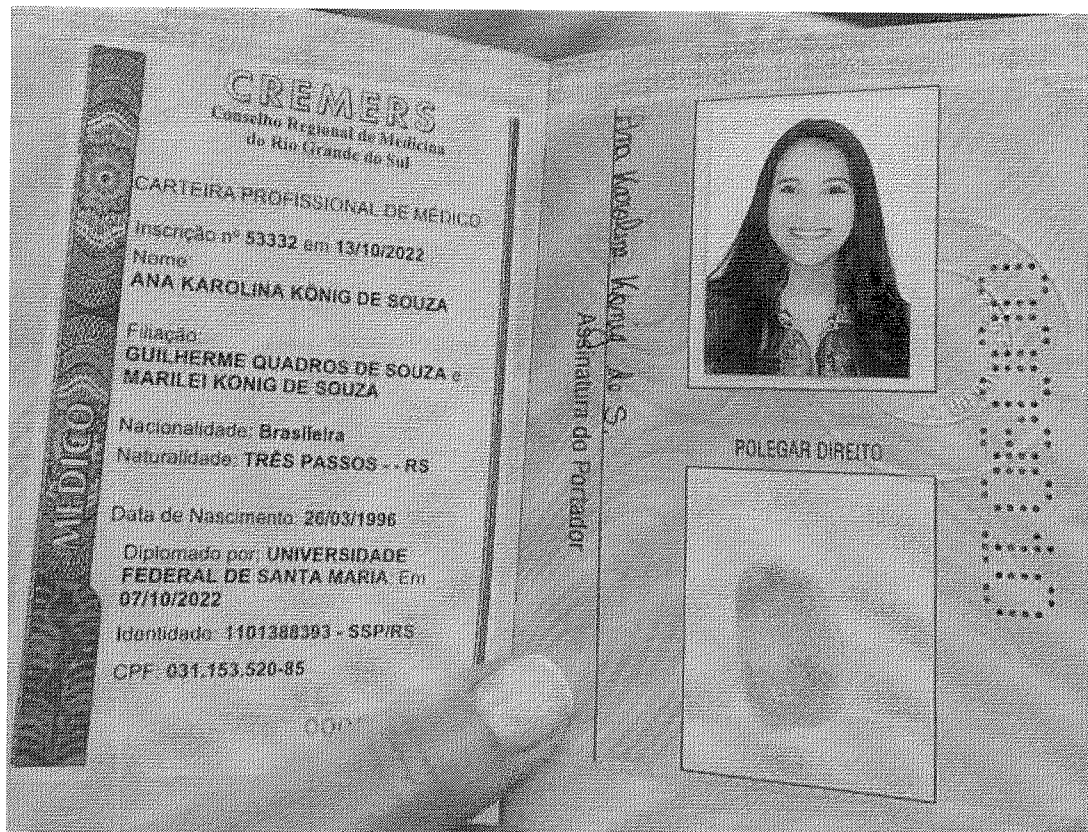 CREMERS
Conselho Regional de Medicina
do Rio Grande do Sul
CARTEIRA PROFISSIONAL DE MÉDICO
Inscrição nº 53332 em 13/10/2022
Nome:
ANA KAROLINA KÖNIG DE SOUZA
Filiação:
GUILHERME QUADROS DE SOUZA e
MARILEI KONIG DE SOUZA
Nacionalidade: Brasileira
Naturalidade: TRÊS PASSOS - - RS
Data de Nascimento: 26/03/1996
Diplomado por: UNIVERSIDADE
FEDERAL DE SANTA MARIA. Em
07/10/2022
Identidade: 1101388393 - SSP/RS
CPF: 031.153.520-85
MÉDICO
Ana Karolina König de S.
Assinatura do Portador
POLEGAR DIREITO